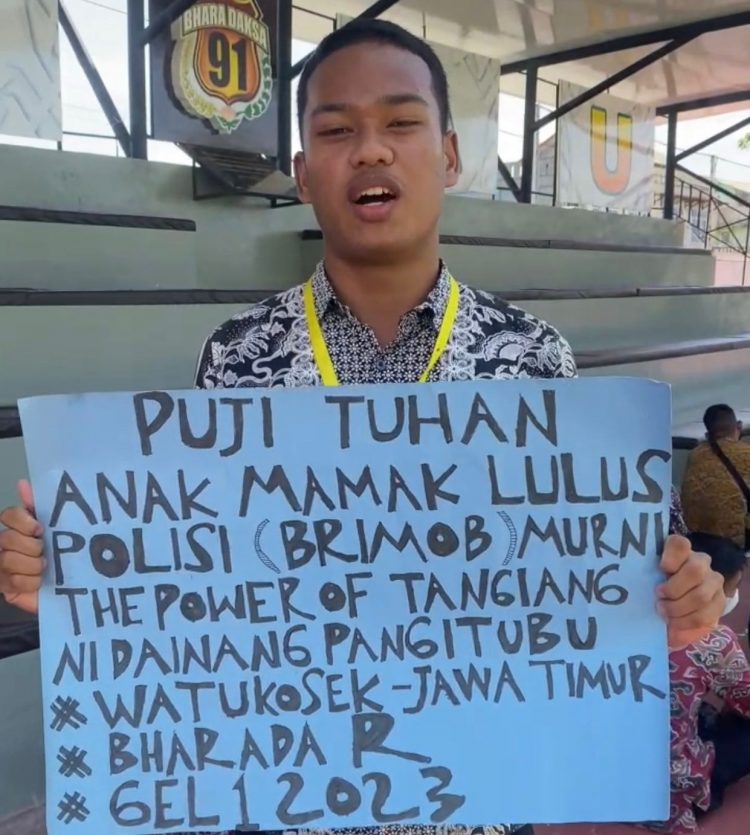 BHARA DAKSA
91
U
PUJI TUHAN
ANAK MAMAK LULUS
POLISI (BRIMOB) MURNI
THE POWER OF TANGIANG
NI DAINANG PANGITUBU
# WATUKOSEK - JAWA TIMUR
# BHARADA R
# GEL 1 2023